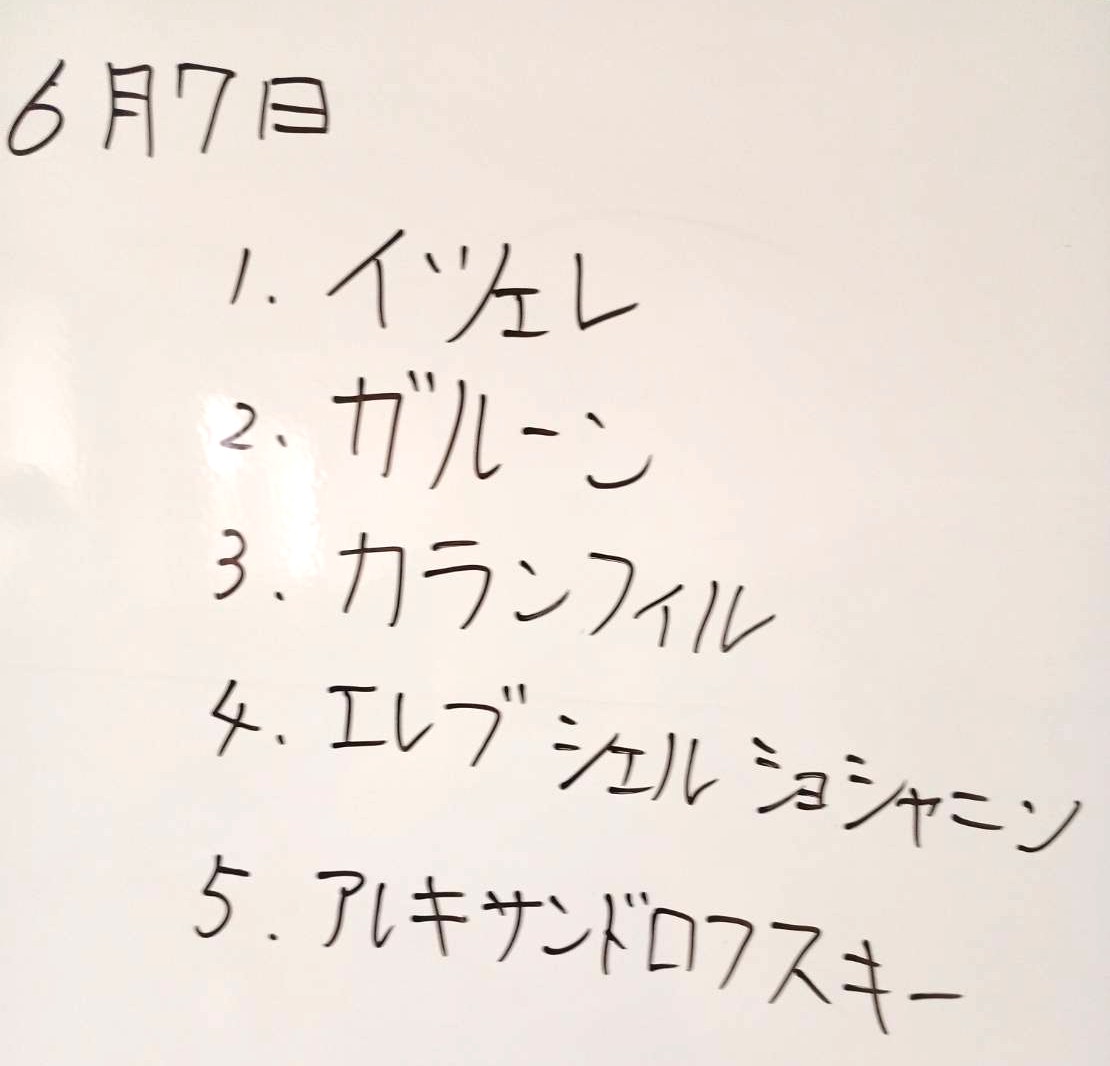 6月7日
1. イヅェレ
2. ガルーン
3. カランフィル
4. エレブ シェル ショシャニン
5. アレキサンドロフスキー